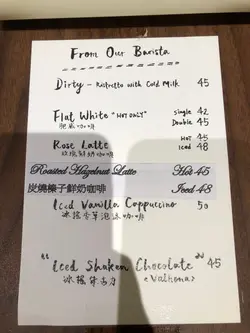 From Our Barista
Dirty - Ristretto with Cold Milk 45
Flat White "HOT ONLY" Single 42
Double 45
Hot 45
Rose Latte Iced 48
玫瑰鮮奶咖啡
Roasted Hazelnut Latte Hot 45
炭燒榛子鮮奶咖啡 Iced 48
Iced Vanilla Cappuccino 50
冰搖香草泡沫咖啡
"Iced Shaken Chocolate" 45
冰搖朱古力 (Valrhona)